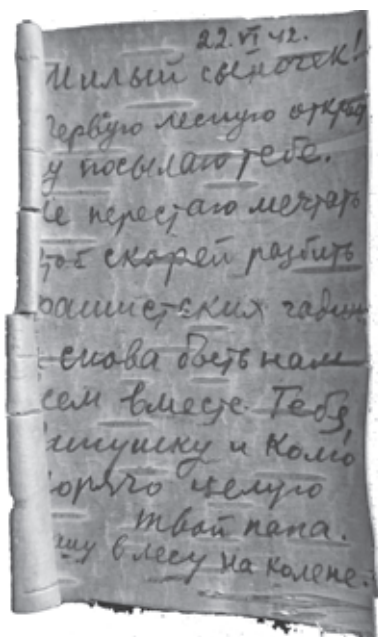 22. VI 42.
Милый сыночек!
Первую лесную открыт
ку посылаю тебе.
Не перестаю мечтать
чтоб скорей разбить
фашистских гадин
и снова быть нам
всем вместе. Тебя,
и Колю
горячо целую
твой папа.
Пишу в лесу на колене.